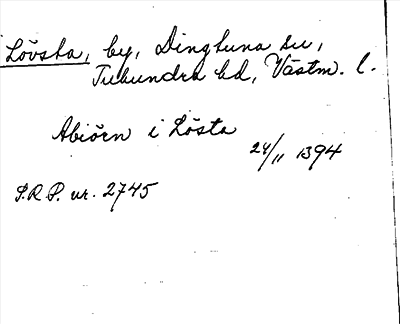 Lövsta, by, Dingtuna sn,
Tuhundra hd, Västm. l.
Abiörn i Lösta
24/11 1394
S.R.P. nr. 2745